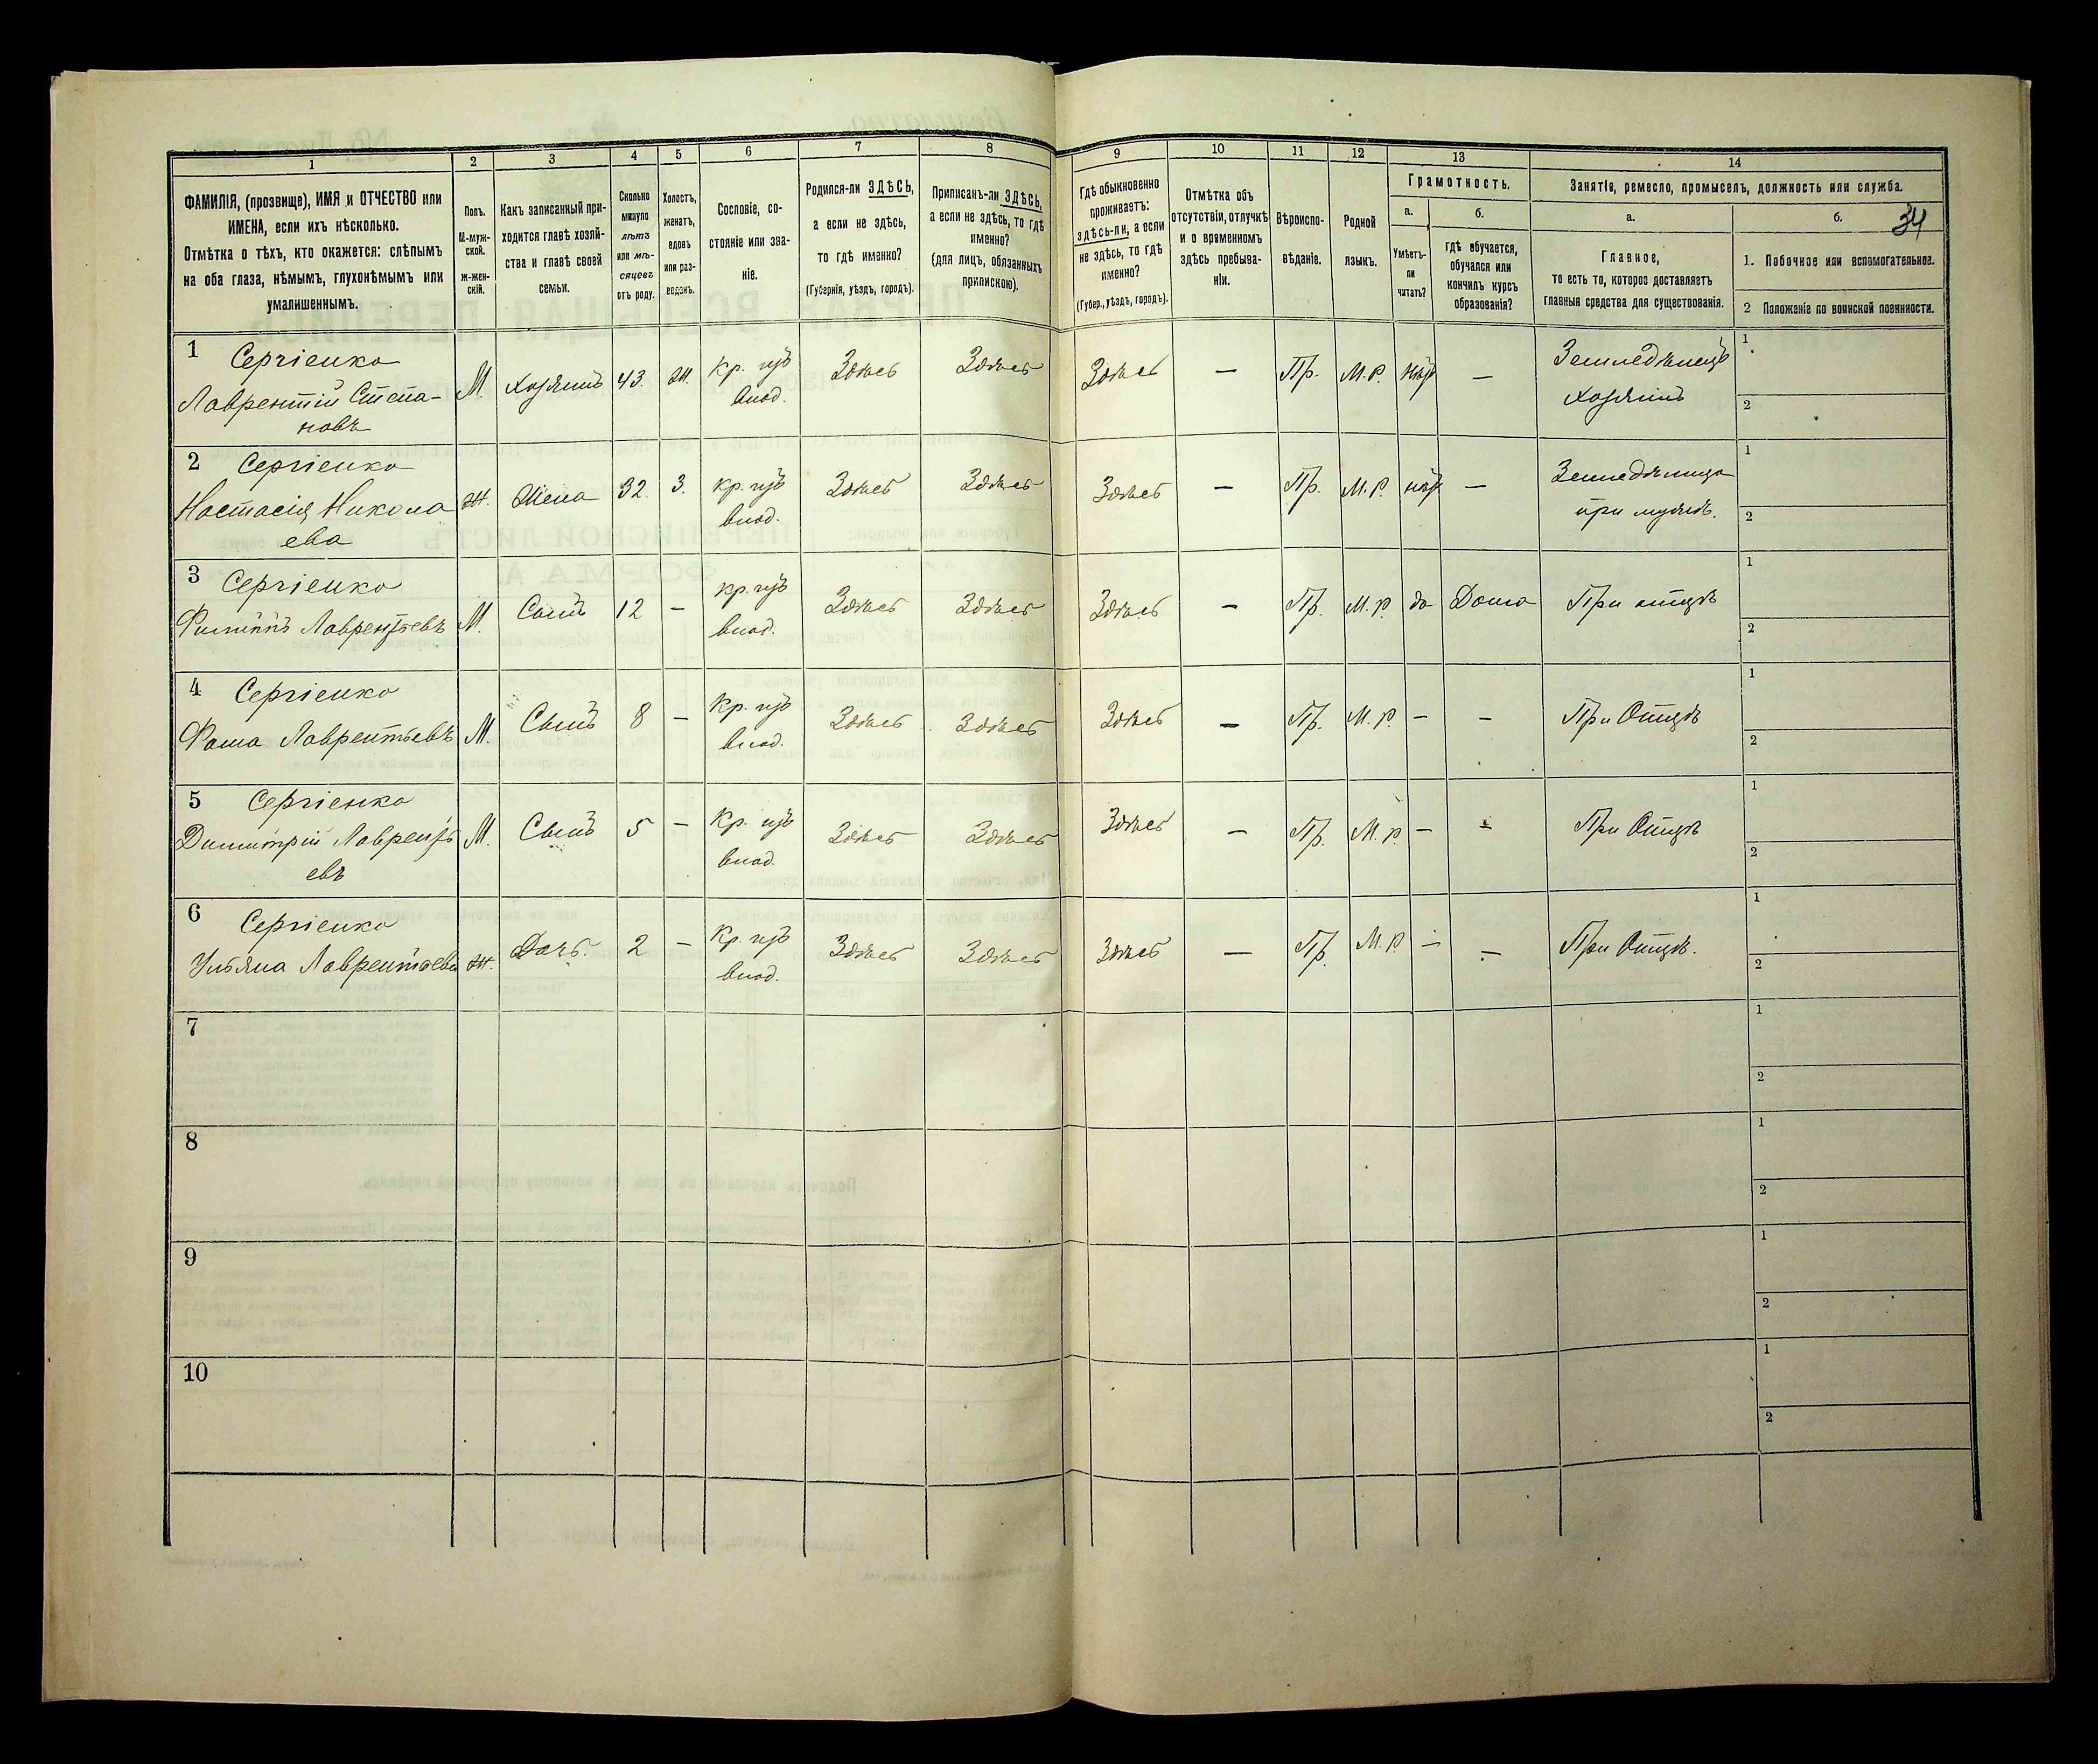 1 2 3 4 5 6 7 8 9 10 11 12 13 14
34
ФАМИЛІЯ, (прозвище), ИМЯ и ОТЧЕСТВО или
ИМЕНА, если ихъ нѣсколько.
Отмѣтка о тѣхъ, кто окажется: слѣпымъ
на оба глаза, нѣмымъ, глухонѣмымъ или
умалишеннымъ.
Полъ.
М-муж-
ской.
Ж-жен-
скій.
Какъ записанный при-
ходится главѣ хозяй-
ства и главѣ своей
семьи.
Сколько
минуло
лѣтъ
или мѣ-
сяцевъ
отъ роду.
Холостъ,
женатъ,
вдовъ
или раз-
веденъ.
Сословіе, со-
стояніе или зва-
ніе.
Родился-ли ЗДѢСЬ,
а если не здѣсь,
то гдѣ именно?
(Губернія, уѣздъ, городъ).
Приписанъ-ли ЗДѢСЬ,
а если не здѣсь, то гдѣ
именно?
(для лицъ, обязанныхъ
припискою).
Гдѣ обыкновенно
проживаетъ:
здѣсь-ли, а если
не здѣсь, то гдѣ
именно?
(Губер., уѣздъ, городъ).
Отмѣтка объ
отсутствіи, отлучкѣ
и о временномъ
здѣсь пребыва-
ніи.
Вѣроиспо-
вѣданіе.
Родной
языкъ.
Грамотность.
а.
Умѣетъ-
ли
читать?
б.
гдѣ обучается,
обучался или
кончилъ курсъ
образованія?
Занятіе, ремесло, промыселъ, должность или служба.
а.
Главное,
то есть то, которое доставляетъ
главныя средства для существованія.
б.
1. Побочное или вспомогательное.
2 Положеніе по воинской повинности.
1 Сергіенко
Лаврентій Степа-
новъ
М. Хозяинъ 43. Ж. Кр. изъ
влад.
Здѣсь Здѣсь Здѣсь — Пр. М.р. нѣт — Земледѣлецъ
хозяинъ
1
2
2 Сергіенко
Настасія Никола
ева
Ж. Жена 32. З. Кр. изъ
влад.
Здѣсь Здѣсь Здѣсь — Пр. М.р. нѣт — Земледѣлица
при мужѣ.
1
2
3 Сергіенко
Филиппъ Лаврентьевъ
М. Сынъ 12 — Кр. изъ
влад.
Здѣсь Здѣсь Здѣсь — Пр. М.р. да Дома При отцѣ
1
2
4 Сергіенко
Фома Лаврентьевъ
М. Сынъ 8 — Кр. изъ
влад.
Здѣсь Здѣсь Здѣсь — Пр. М.р. — — При Отцѣ
1
2
5 Сергіенко
Димитрій Лаврентьевъ
М. Сынъ 5 — Кр. изъ
влад.
Здѣсь Здѣсь Здѣсь — Пр. М.р. — — При Отцѣ
1
2
6 Сергіенко
Ульяна Лаврентьева
Ж. Дочь. 2 — Кр. изъ
влад.
Здѣсь Здѣсь Здѣсь — Пр. М.р. — — При Отцѣ.
1
2
7
1
2
8
1
2
9
1
2
10
1
2